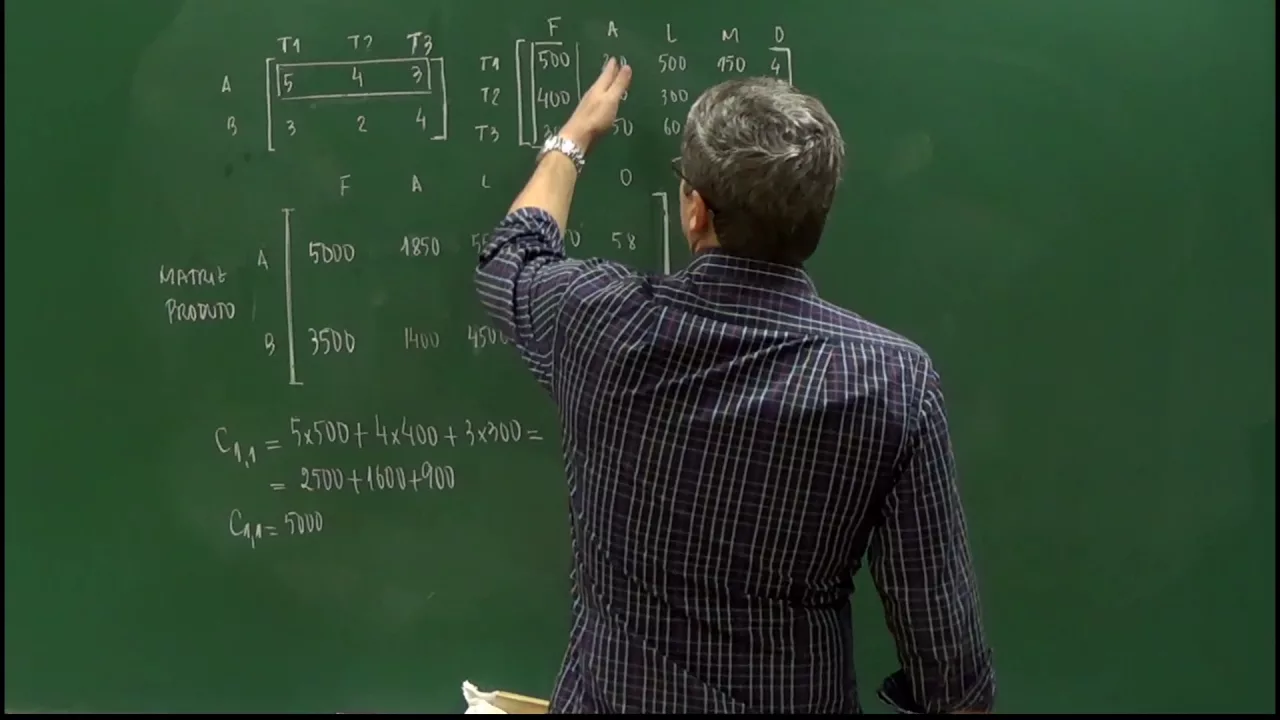 T1 T2 T3
A 5 4 3
B 3 2 4
F A L M D
T1 500 500 150 4
T2 400 300
T3 50
F A L D
MATRIZ PRODUTO
A 5000 1850 58
B 3500 1400 4500
C1,1 = 5x500 + 4x400 + 3x300 =
= 2500 + 1600 + 900
C1,1 = 5000